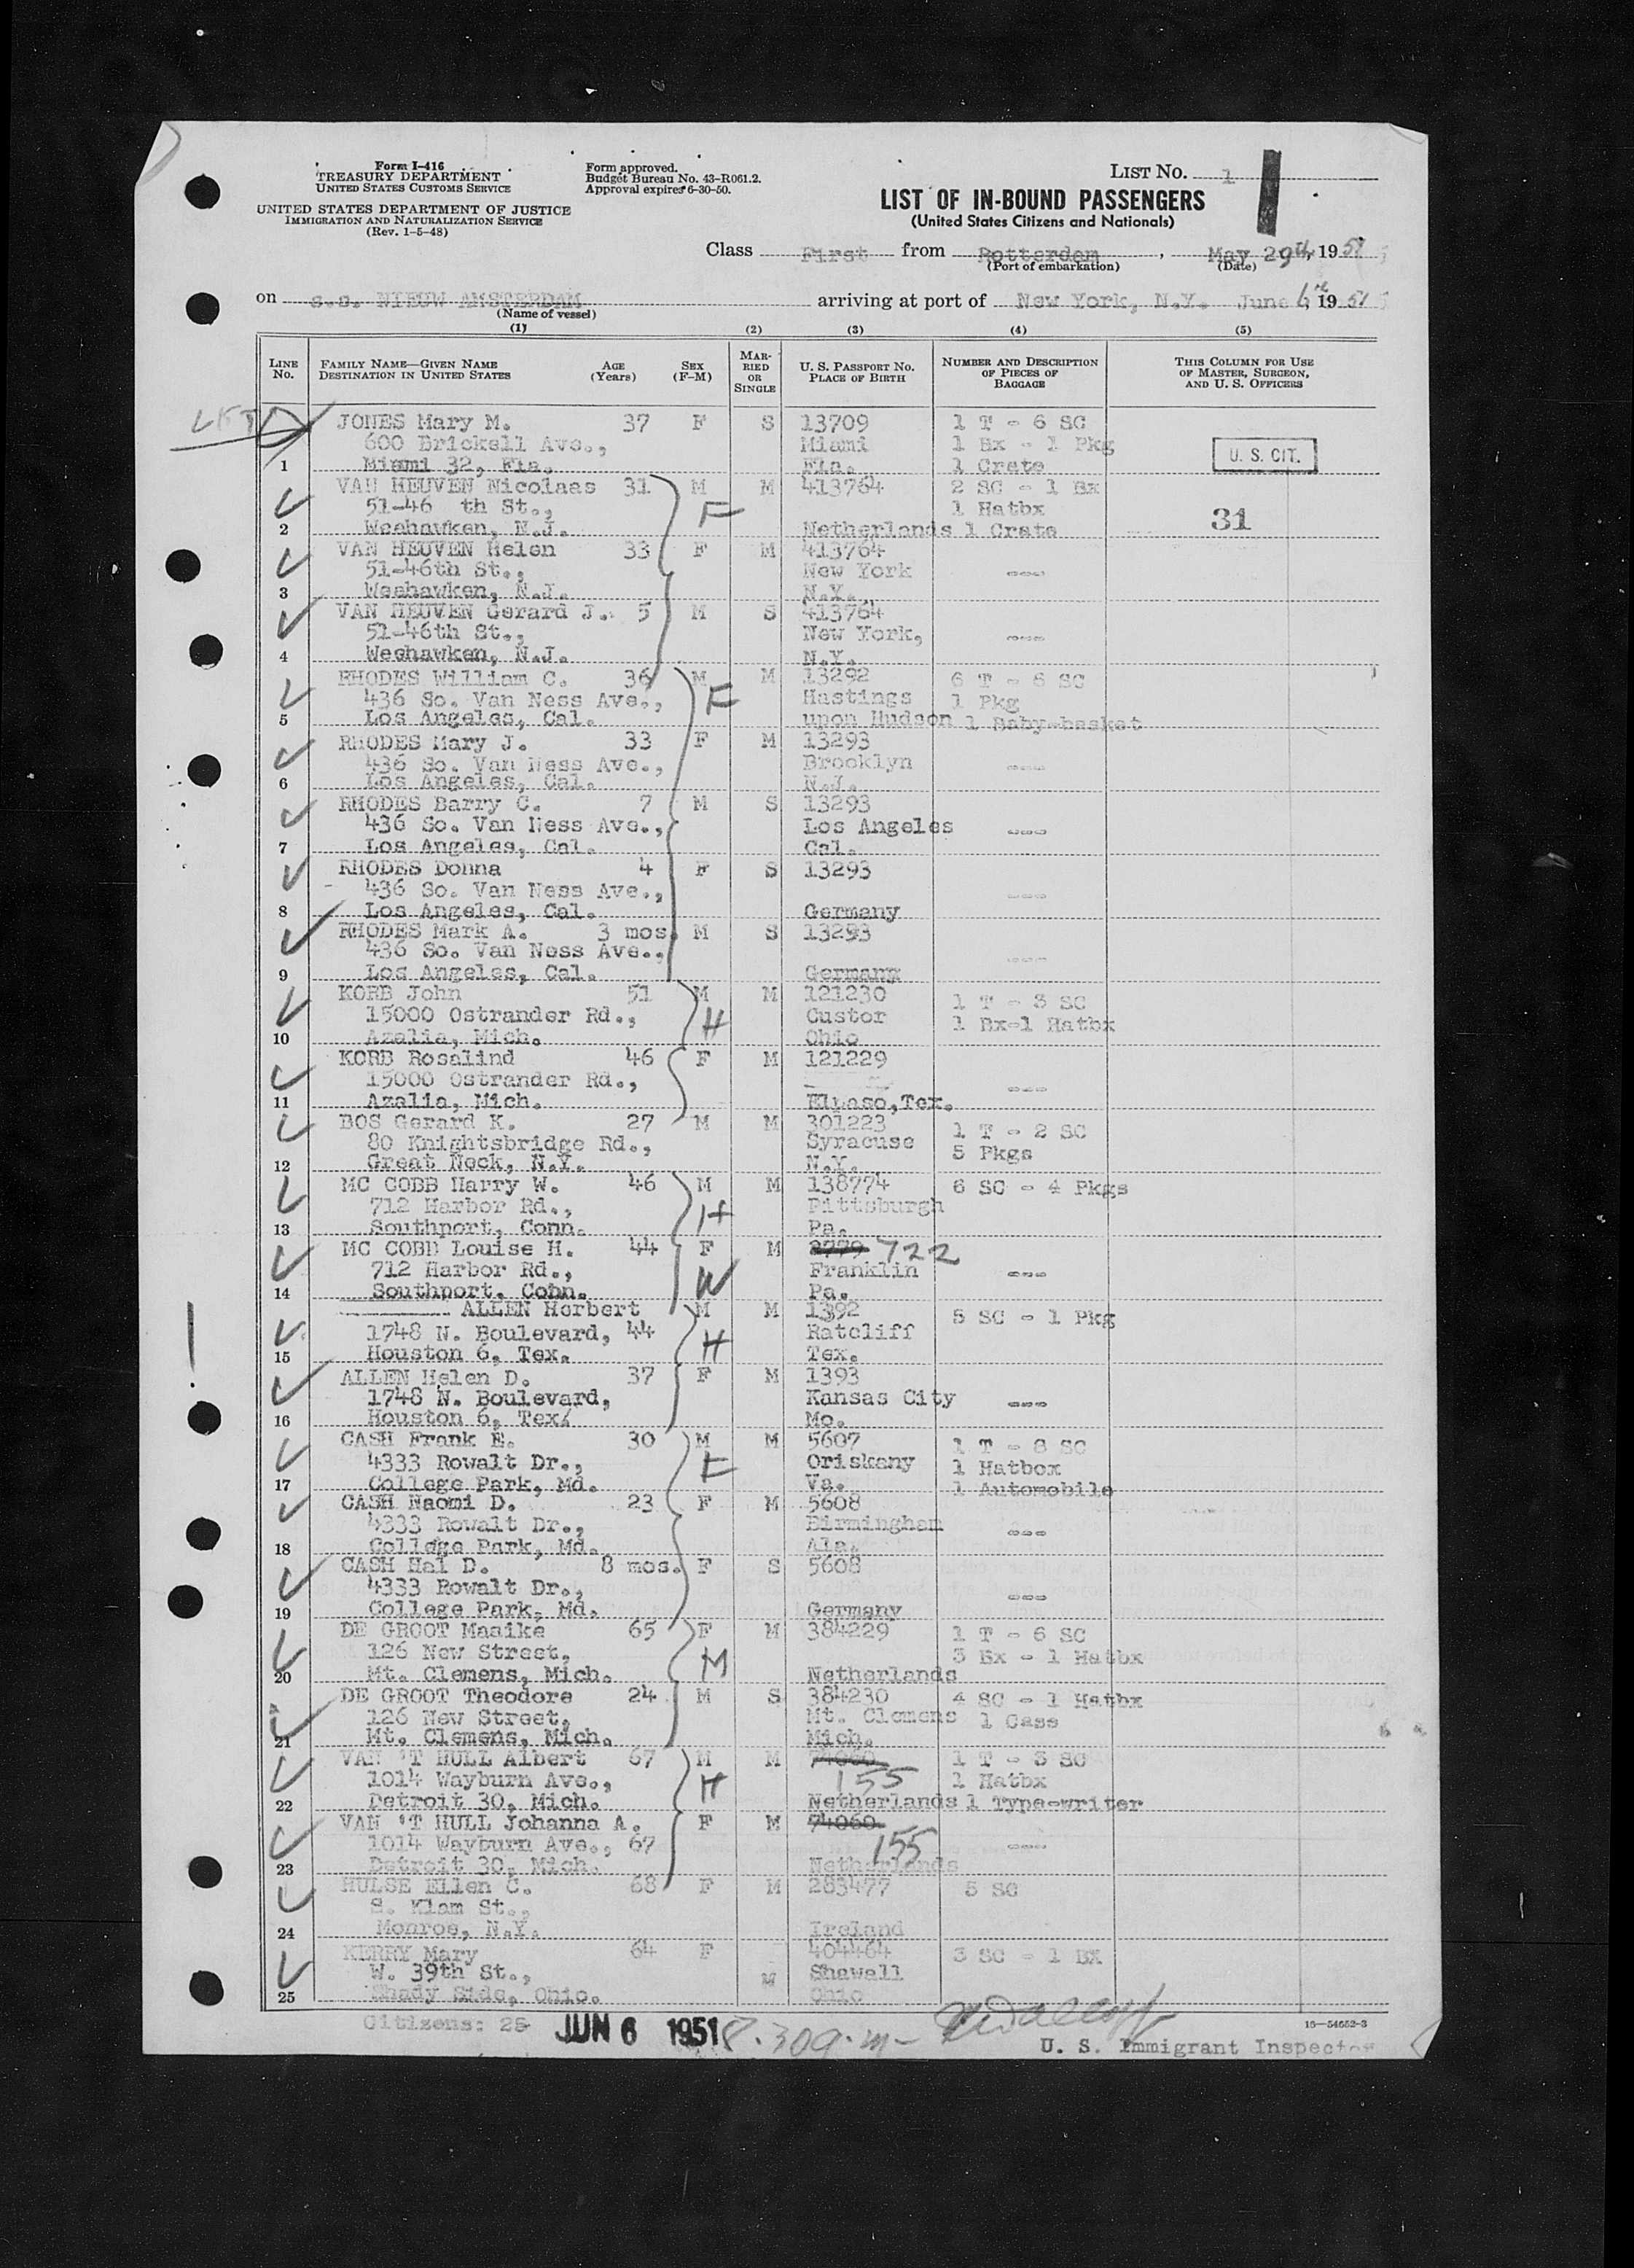 Form I-416
TREASURY DEPARTMENT
UNITED STATES CUSTOMS SERVICE
UNITED STATES DEPARTMENT OF JUSTICE
IMMIGRATION AND NATURALIZATION SERVICE
(Rev. 1-5-48)
Form approved.
Budget Bureau No. 43-R061.2.
Approval expires 6-30-50.
LIST NO. 1
LIST OF IN-BOUND PASSENGERS
(United States Citizens and Nationals)
Class First from Rotterdam, May 29th, 1951
(Port of embarkation) (Date)
on s.s. NIEUW AMSTERDAM arriving at port of New York, N.Y. June 6th 1951
(Name of vessel)
(1) (2) (3) (4) (5)
LINE No. FAMILY NAME—GIVEN NAME DESTINATION IN UNITED STATES AGE (Years) SEX (F-M) MARRIED OR SINGLE U. S. PASSPORT NO. PLACE OF BIRTH NUMBER AND DESCRIPTION OF PIECES OF BAGGAGE THIS COLUMN FOR USE OF MASTER, SURGEON, AND U. S. OFFICERS
JONES Mary M. 37 F S 13709 1 T - 6 SC
600 Brickell Ave., Miami 1 Bx - 1 Pkg
1 Miami 32, Fla. Fla. 1 Crate
U. S. CIT.
VAN HEUVEN Nicolaas 31 M M 413764 2 SC - 1 Bx
51-46 th St., F 1 Hatbx
2 Weehawken, N.J. Netherlands 1 Crate
31
VAN HEUVEN Helen 33 F M 413764
51-46th St., New York ---
3 Weehawken, N.J. N.Y.
VAN HEUVEN Gerard J. 5 M S 413764
51-46th St., New York, ---
4 Weehawken, N.J. N.Y.
RHODES William C. 36 M M 13292 6 T - 6 SC
436 So. Van Ness Ave., F Hastings 1 Pkg
5 Los Angeles, Cal. upon Hudson 1 Baby-basket
RHODES Mary J. 33 F M 13293
436 So. Van Ness Ave., Brooklyn ---
6 Los Angeles, Cal. N.J.
RHODES Barry C. 7 M S 13293
436 So. Van Ness Ave., Los Angeles ---
7 Los Angeles, Cal. Cal.
RHODES Donna 4 F S 13293
436 So. Van Ness Ave., ---
8 Los Angeles, Cal. Germany
RHODES Mark A. 3 mos. M S 13293
436 So. Van Ness Ave., ---
9 Los Angeles, Cal. Germany
KORB John 51 M M 121230 1 T - 3 SC
15000 Ostrander Rd., H Custor 1 Bx-1 Hatbx
10 Azalia, Mich. Ohio
KORB Rosalind 46 F M 121229
15000 Ostrander Rd., ---
11 Azalia, Mich. Elpaso, Tex.
BOS Gerard K. 27 M M 301223 1 T - 2 SC
80 Knightsbridge Rd., Syracuse 5 Pkgs
12 Great Neck, N.Y. N.Y.
MC COBB Harry W. 46 M M 138774 6 SC - 4 Pkgs
712 Harbor Rd., H Pittsburgh
13 Southport, Conn. Pa.
MC COBB Louise H. 44 F M 722
712 Harbor Rd., W Franklin ---
14 Southport, Conn. Pa.
ALLEN Herbert M M 1392 5 SC - 1 Pkg
1748 N. Boulevard, 44 H Ratcliff
15 Houston 6, Tex. Tex.
ALLEN Helen D. 37 F M 1393
1748 N. Boulevard, Kansas City ---
16 Houston 6, Tex. Mo.
CASH Frank E. 30 M M 5607 1 T - 8 SC
4333 Rowalt Dr., F Oriskany 1 Hatbox
17 College Park, Md. Va. 1 Automobile
CASH Naomi D. 23 F M 5608
4333 Rowalt Dr., Birmingham ---
18 College Park, Md. Ala.
CASH Hal D. 8 mos. F S 5608
4333 Rowalt Dr., ---
19 College Park, Md. Germany
DE GROOT Maaike 65 F M 384229 1 T - 6 SC
126 New Street, M 3 Bx - 1 Hatbx
20 Mt. Clemens, Mich. Netherlands
DE GROOT Theodore 24 M S 384230 4 SC - 1 Hatbx
126 New Street, Mt. Clemens 1 Case
21 Mt. Clemens, Mich. Mich.
VAN 'T HULL Albert 67 M M 74060 1 T - 3 SC
1014 Wayburn Ave., H 155 1 Hatbx
22 Detroit 30, Mich. Netherlands 1 Type-writer
VAN 'T HULL Johanna A. F M 74060
1014 Wayburn Ave., 67 155 ---
23 Detroit 30, Mich. Netherlands
HULSE Ellen C. 68 F M 283477 5 SC
S. Klam St.,
24 Monroe, N.Y. Ireland
KERRY Mary 64 F 404464 3 SC - 1 BX
W. 39th St., W Shawell
25 Shady Side, Ohio. Ohio
Citizens: 25 JUN 6 1951 8.30 a.m-
16—54652-3
U. S. Immigrant Inspector